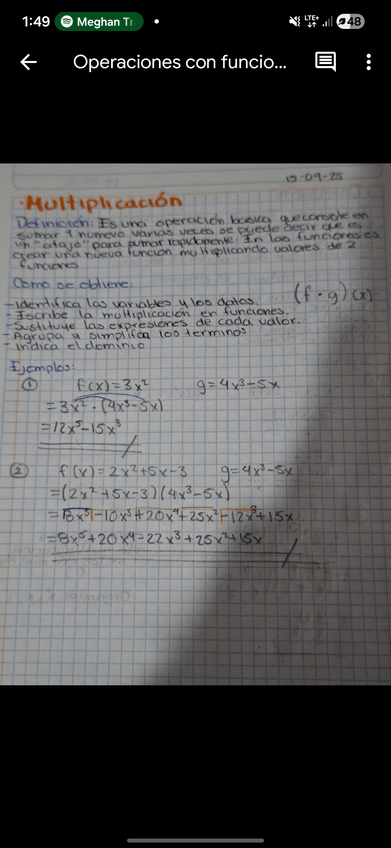 1:49 Meghan Tr LTE+ 48
Operaciones con funcio...
15-09-25
·Multiplicación
Definición: Es una operación basica que consiste en
sumar 1 numero varias veces se puede decir que es
un "atajo" para sumar rapidamente. En las funciones es
crear una nueva función multiplicando valores de 2
funciones
Como se obtiene:
-Identifica las variables y los datos. (f·g)(x)
-Escribe la multiplicación en funciones.
-Sustituye las expresiones de cada valor.
-Agrupa y simplifica los terminos
-Indica el dominio
Ejemplos:
① f(x)=3x² g=4x³-5x
=3x²·(4x³-5x)
=12x⁵-15x³
② f(x)=2x²+5x-3 g=4x³-5x
=(2x²+5x-3)(4x³-5x)
=8x⁵-10x³+20x⁴+25x²-12x³+15x
=8x⁵+20x⁴-22x³+25x²+15x